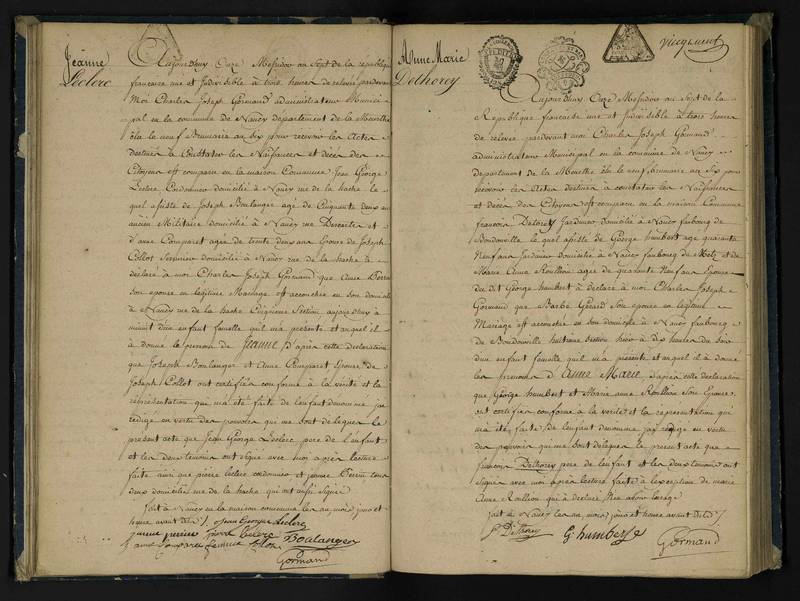 Jeanne
Leclerc
Aujourdhuy Onze Messidor an Sept de la republique
francaise une et Indivisible à trois heures de relevée pardevant
Moi Charles Joseph Gormand administrateur Munici-
pal en la commune de Nancy departement de la Meurthe
élu le neuf Brumaire an six pour recevoir les Actes
destinés à Constater les Naissances et décès des
Citoyens est comparu en la maison Commune Jean George
Leclerc Cordonnier domicilié à Nancy rue de la hache le
quel assisté de Joseph Boulanger agé de Cinquante deux ans
ancien Militaire domicilié à Nancy rue Descartes et
d'anne Comparet agée de trente deux ans Epouse de Joseph
Collot Serrurier domicilié à Nancy rue de la hache à
déclaré à moi Charles Joseph Gormand que Anne Perrin
son épouse en légitime Mariage est accouchée en son domicile
à Nancy rue de la hache Cinquieme Section aujourdhuy à
minuit d'un enfant femelle qu'il m'a présenté et auquel il
à donné le prenom de Jeanne D'après cette déclaration
que Joseph Boulanger et Anne Comparet Epouse de
Joseph Collot ont certifiée conforme à la vérité et la
réprésentation qui m'a été faite de l'enfant denommé j'ai
redigé en vertu des pouvoirs qui me sont delegués le
présent acte que Jean George Leclerc pere de l'enfant
et les deux temoins ont signé avec moi après lecture
faite ainsi que pierre leclerc cordonnier et jeanne Perrin tous
deux domiciliés rue de la hache qui ont aussi signé
fait à Nancy en la maison commune les an mois jour et
heure avant dits Jean George Leclerc
janne perrin pierre leclerc
anne Comparet Boulanger
Gormand
Anne-Marie
Dethorey
Aujourdhuy Onze Messidor an Sept de la
Republique francaise une et Indivisible à trois heures
de relevée pardevant moi Charles Joseph Gormand
administrateur Municipal en la commune de Nancy
departement de la Meurthe élu le neuf Brumaire an Six pour
recevoir les Actes destinés à constater les Naissances
et décès des Citoyens est comparu en la maison Commune
francois Dethorey Jardinier domicilié à Nancy faubourg de
Boudonville le quel assisté de George humbert agé quarante
Neuf ans Jardinier domicilié à Nancy faubourg de Metz et de
Marie Anne Roillion agée de quarante Neuf ans Epouse
du dit George humbert à déclaré à moi Charles Joseph
Gormand que Barbe Gerard Son épouse en légitime
Mariage est accouchée en son domicile à Nancy faubourg
de Boudonville huitieme Section hier à dix heures du soir
d'un enfant femelle qu'il m'a présenté et auquel il à donné
les prenoms d'Anne Marie D'après cette déclaration
que George humbert et Marie anne Roillion Son Epouse
ont certifiée conforme à la verité et la representation qui
m'a été faite de l'enfant denommé j'ai redigé en vertu
des pouvoirs qui me sont delegués le present acte que
francois Dethorey pere de l'enfant et les deux temoins ont
signés avec moi après lecture faite à l'exception de marie
Anne Roillion qui à déclaré N'en avoir l'usage
fait à Nancy les an, mois, jour et heure avant dits
f Dethorey G humbert Gormand